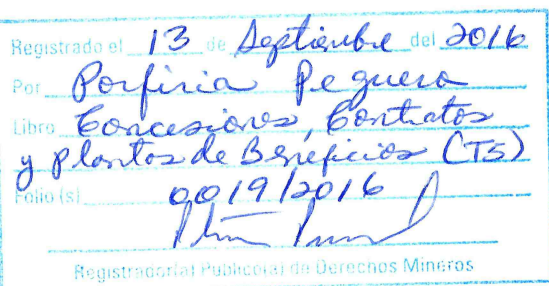 Registrado el 13 de Septiembre del 2016
Por Porfiria Peguero
Libro Concesiones, Contratos
y plantas de Beneficios (T5)
Folio (s) 0019/2016
Registrador(a) Público(a) de Derechos Mineros